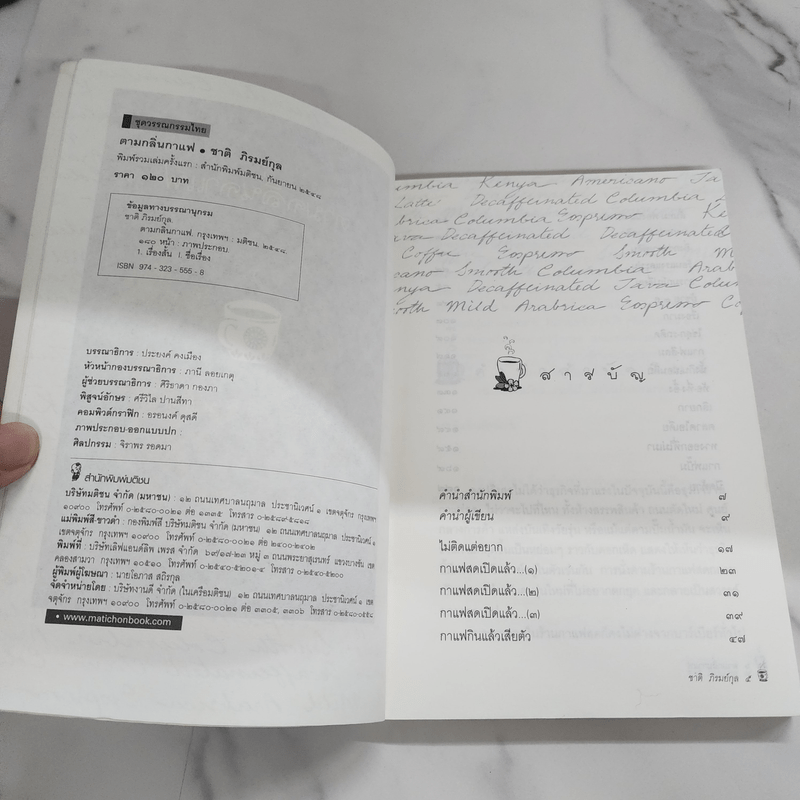 ชุดวรรณกรรมไทย
ตามกลิ่นกาแฟ • ชาติ ภิรมย์กุล
พิมพ์รวมเล่มครั้งแรก : สำนักพิมพ์มติชน, กันยายน ๒๕๔๘
ราคา ๑๒๐ บาท
ข้อมูลทางบรรณานุกรม
ชาติ ภิรมย์กุล.
ตามกลิ่นกาแฟ. กรุงเทพฯ : มติชน, ๒๕๔๘.
๑๘๐ หน้า : ภาพประกอบ.
1. เรื่องสั้น I. ชื่อเรื่อง
ISBN 974 - 323 - 555 - 8
บรรณาธิการ : ประยงค์ คงเมือง
หัวหน้ากองบรรณาธิการ : ภานี ลอยเกตุ
ผู้ช่วยบรรณาธิการ : ศิริธาดา กองภา
พิสูจน์อักษร : ศรีวิไล ปานสีทา
คอมพิวต์กราฟิก : อรอนงค์ ดุสดี
ภาพประกอบ-ออกแบบปก :
ศิลปกรรม : จิราพร รอดมา
สำนักพิมพ์มติชน
บริษัทมติชน จำกัด (มหาชน) : ๑๒ ถนนเทศบาลนฤมาล ประชานิเวศน์ ๑ เขตจตุจักร กรุงเทพฯ
๑๐๙๐๐ โทรศัพท์ ๐-๒๕๘๐-๐๐๒๑ ต่อ ๑๒๓๕ โทรสาร ๐-๒๕๘๙-๕๘๑๘
แม่พิมพ์สี-ขาวดำ : กองพิมพ์สี บริษัทมติชน จำกัด (มหาชน) ๑๒ ถนนเทศบาลนฤมาล ประชานิเวศน์ ๑
เขตจตุจักร กรุงเทพฯ ๑๐๙๐๐ โทรศัพท์ ๐-๒๕๘๐-๐๐๒๑ ต่อ ๒๔๐๐-๒๔๐๒
พิมพ์ที่ : บริษัทเลิฟแอนด์ลิพ เพรส จำกัด ๖๙/๑๘-๒๓ หมู่ ๓ ถนนพระยาสุเรนทร์ แขวงบางชัน เขต
คลองสามวา กรุงเทพฯ ๑๐๕๑๐ โทรศัพท์ ๐-๒๕๔๐-๕๒๐๑-๔ โทรสาร ๐-๒๕๔๐-๕๒๐๐
ผู้พิมพ์ผู้โฆษณา : นายโอภาส สถิรกุล
จัดจำหน่ายโดย : บริษัทงานดี จำกัด (ในเครือมติชน) ๑๒ ถนนเทศบาลนฤมาล ประชานิเวศน์ ๑ เขต
จตุจักร กรุงเทพฯ ๑๐๙๐๐ โทรศัพท์ ๐-๒๕๘๐-๐๐๒๑ ต่อ ๓๓๐๕, ๓๓๐๖ โทรสาร
• www.matichonbook.com
umbia Kenya Americano Ja
Latte Decaffeinated Columbia
brica Columbia Exspremo Ke
ava Decaffeinated Decaffeinated
Coffee Exspremo Smooth M
cano Smooth Columbia Arab
nya Decaffeinated Java Colum
ooth Mild Arabrica Exspremo Co
สารบัญ
คำนำสำนักพิมพ์ ๗
คำนำผู้เขียน ๙
ไม่ติดแต่อยาก ๑๗
กาแฟสดเปิดแล้ว...(๑) ๒๓
กาแฟสดเปิดแล้ว...(๒) ๓๑
กาแฟสดเปิดแล้ว...(๓) ๓๙
กาแฟกินแล้วเสียตัว ๔๗
ชาติ ภิรมย์กุล ๕